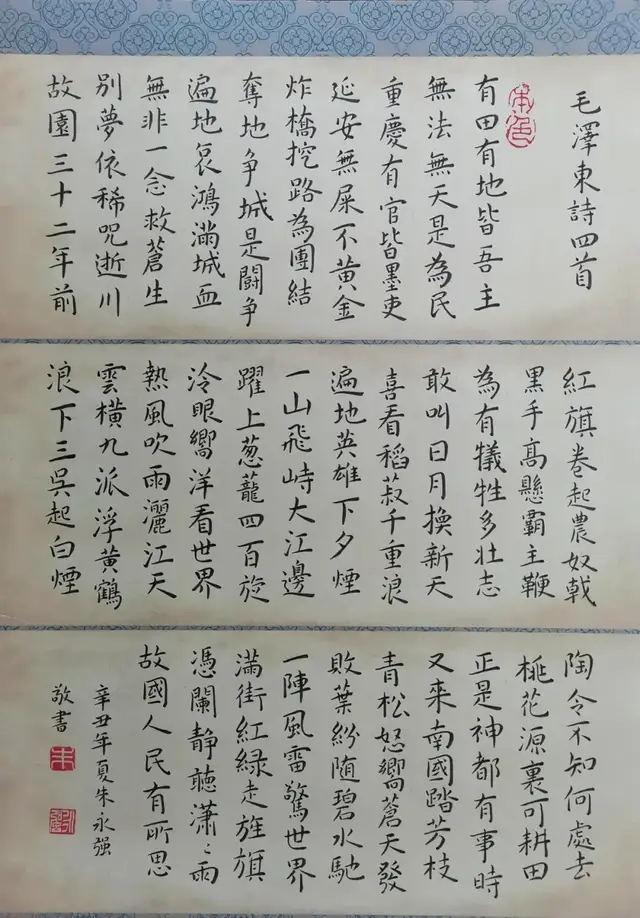 毛澤東詩四首
本色
有田有地皆吾主
無法無天是為民
重慶有官皆墨吏
延安無屎不黃金
炸橋挖路為團結
奪地争城是闘争
遍地哀鴻滿城血
無非一念救蒼生
別夢依稀咒逝川
故園三十二年前
紅旗卷起農奴戟
黑手高懸霸主鞭
為有犧牲多壯志
敢叫日月換新天
喜看稻菽千重浪
遍地英雄下夕煙
一山飛峙大江邊
躍上葱蘢四百旋
冷眼嚮洋看世界
熱風吹雨灑江天
雲橫九派浮黃鶴
浪下三吳起白煙
陶令不知何處去
桃花源裏可耕田
正是神都有事時
又來南國踏芳枝
青松怒嚮蒼天發
敗葉紛随碧水馳
一陣風雷驚世界
滿街紅綠走旌旗
憑闌靜聽瀟〻雨
故國人民有所思
辛丑年夏朱永强
敬書